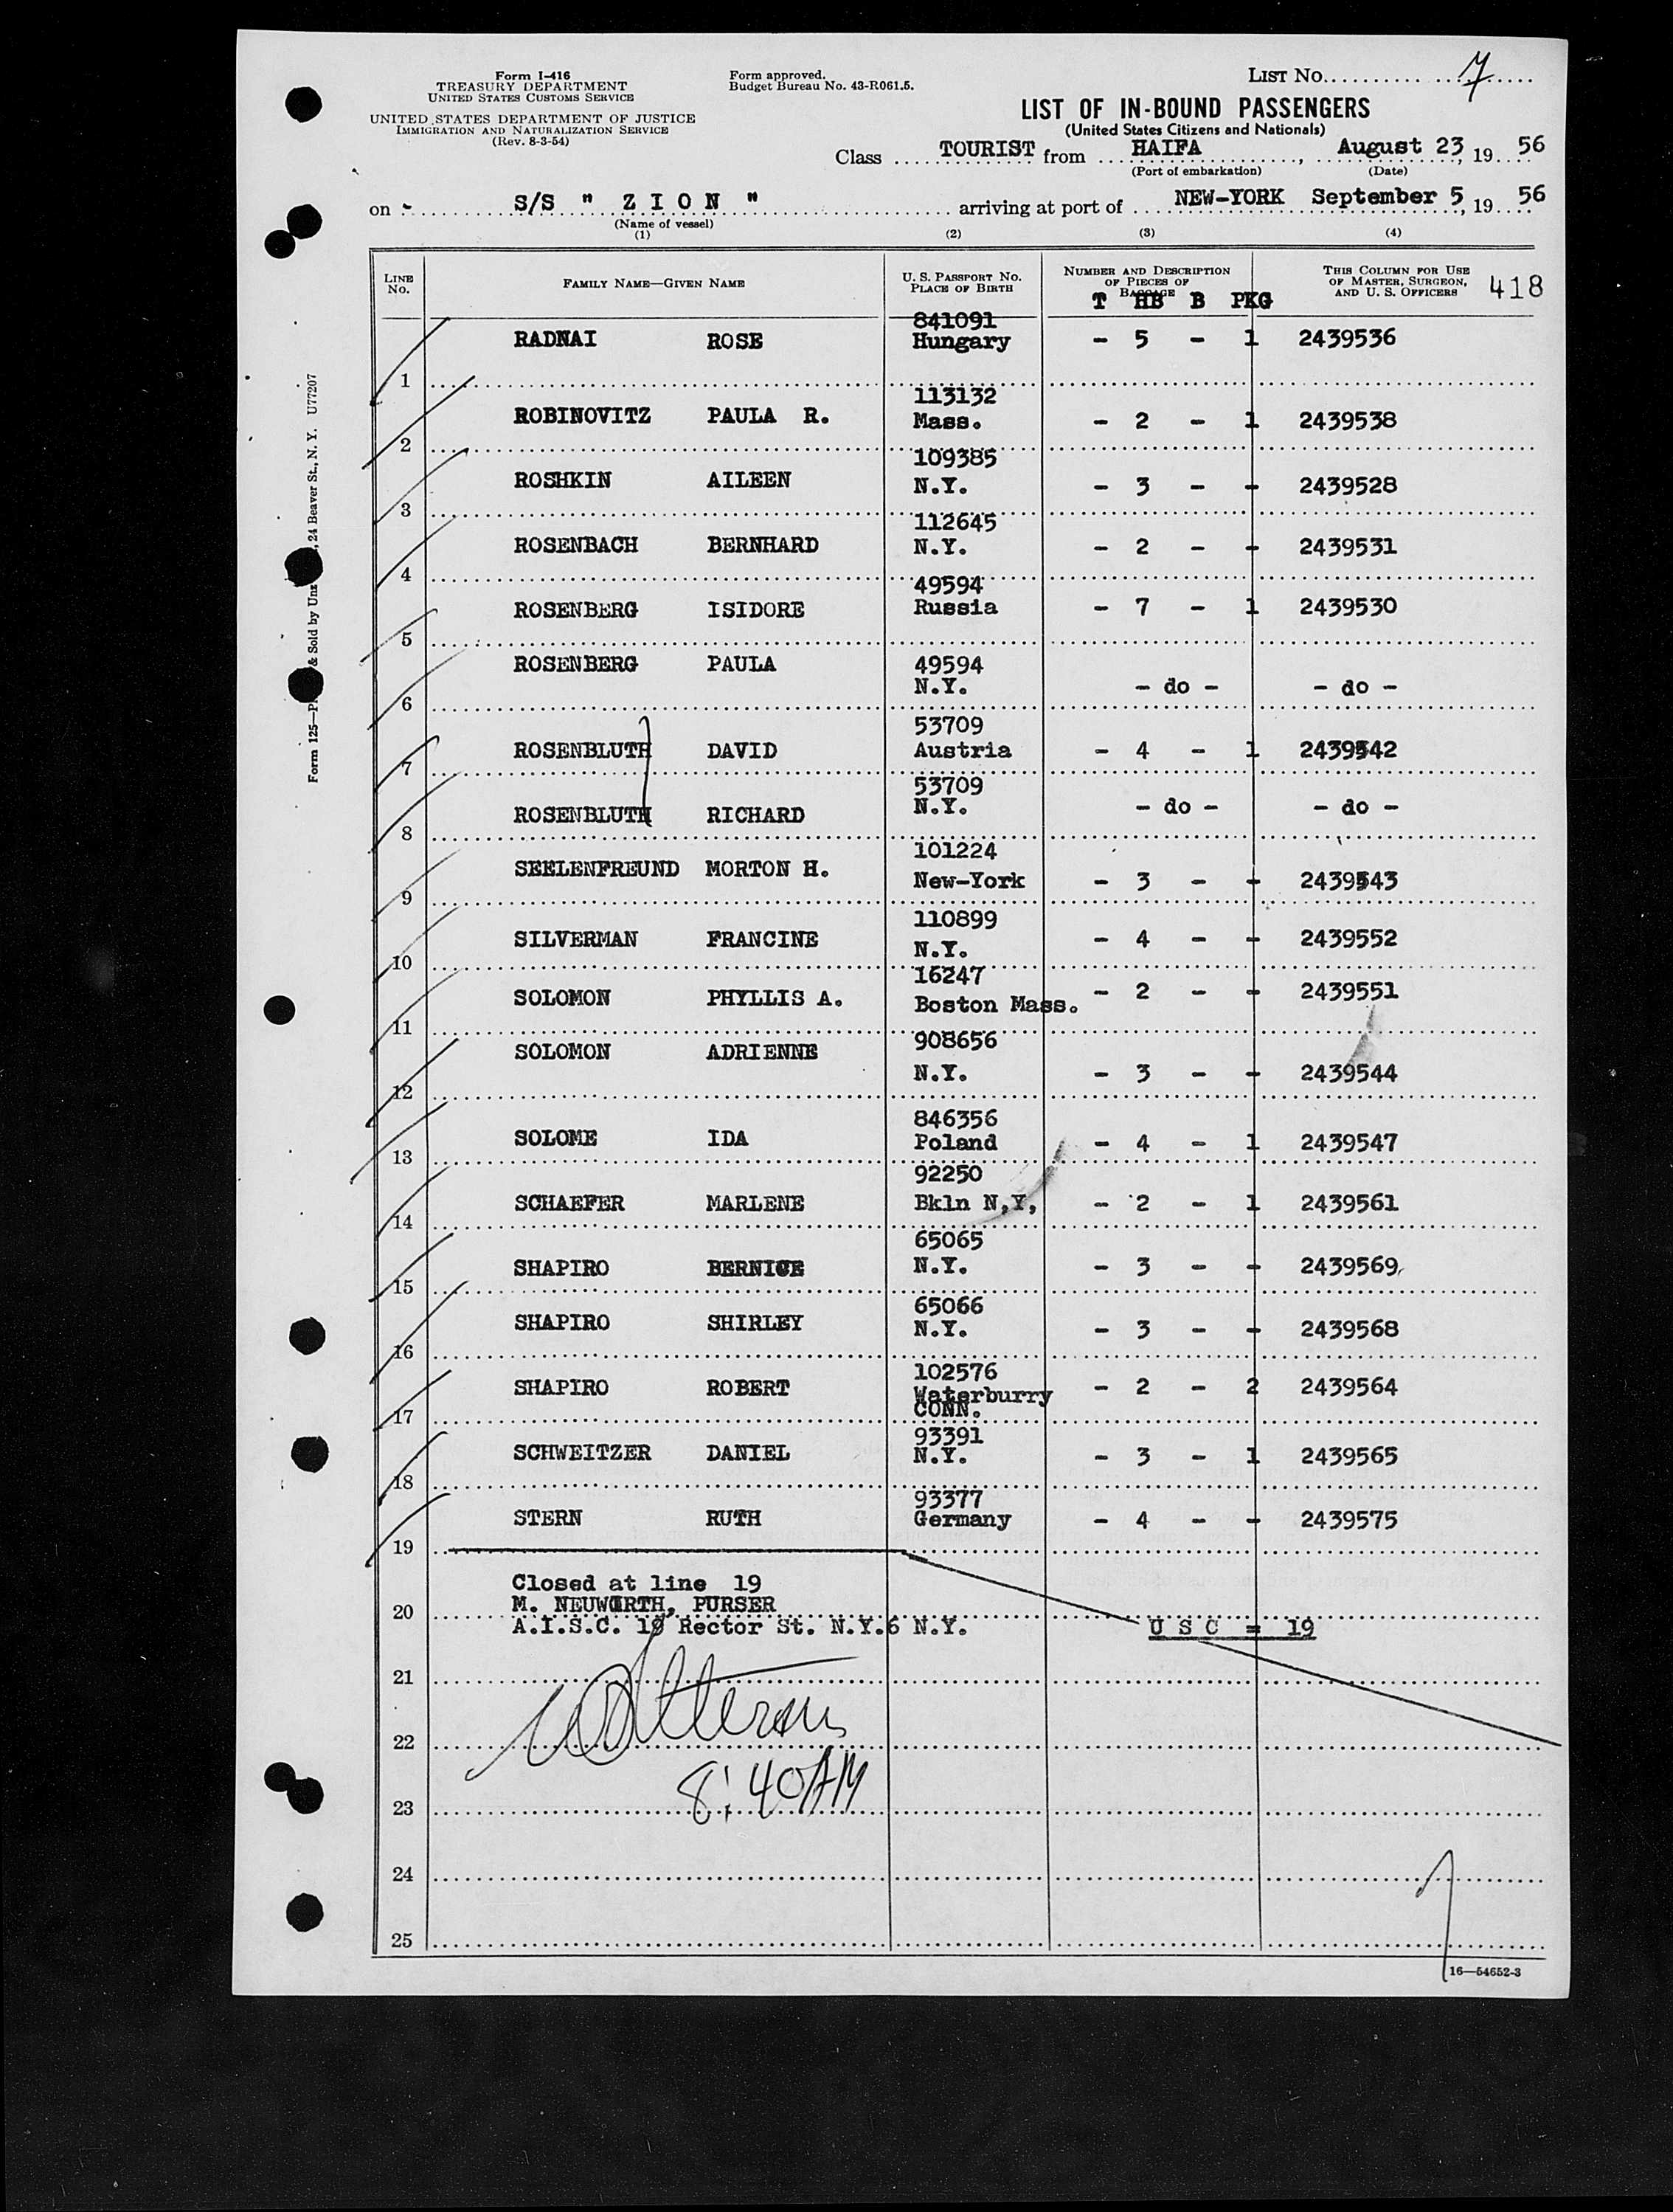 Form I-416
TREASURY DEPARTMENT
UNITED STATES CUSTOMS SERVICE
UNITED STATES DEPARTMENT OF JUSTICE
IMMIGRATION AND NATURALIZATION SERVICE
(Rev. 8-3-54)
Form approved.
Budget Bureau No. 43-R061.5.
LIST No. 7
LIST OF IN-BOUND PASSENGERS
(United States Citizens and Nationals)
Class TOURIST from HAIFA, August 23, 19 56
(Port of embarkation) (Date)
on S/S " Z I O N " arriving at port of NEW-YORK September 5, 19 56
(Name of vessel)
(1) (2) (3) (4)
LINE No. FAMILY NAME—GIVEN NAME U. S. PASSPORT No. PLACE OF BIRTH NUMBER AND DESCRIPTION OF PIECES OF BAGGAGE THIS COLUMN FOR USE OF MASTER, SURGEON, AND U. S. OFFICERS 418
T HB B PKG
841091
RADNAI ROSE Hungary - 5 - 1 2439536
1
113132
ROBINOVITZ PAULA R. Mass. - 2 - 1 2439538
2
109385
ROSHKIN AILEEN N.Y. - 3 - - 2439528
3
112645
ROSENBACH BERNHARD N.Y. - 2 - - 2439531
4
49594
ROSENBERG ISIDORE Russia - 7 - 1 2439530
5
ROSENBERG PAULA 49594
N.Y. - do - - do -
6
53709
ROSENBLUTH DAVID Austria - 4 - 1 2439542
7
53709
ROSENBLUTH RICHARD N.Y. - do - - do -
8
101224
SEELENFREUND MORTON H. New-York - 3 - - 2439543
9
110899
SILVERMAN FRANCINE N.Y. - 4 - - 2439552
10
16247
SOLOMON PHYLLIS A. Boston Mass. - 2 - - 2439551
11
908656
SOLOMON ADRIENNE N.Y. - 3 - - 2439544
12
846356
SOLOME IDA Poland - 4 - 1 2439547
13
92250
SCHAEFER MARLENE Bkln N,Y, - 2 - 1 2439561
14
65065
SHAPIRO BERNICE N.Y. - 3 - - 2439569
15
65066
SHAPIRO SHIRLEY N.Y. - 3 - - 2439568
16
102576
SHAPIRO ROBERT Waterburry - 2 - 2 2439564
CONN.
17
93391
SCHWEITZER DANIEL N.Y. - 3 - 1 2439565
18
93377
STERN RUTH Germany - 4 - - 2439575
19
Closed at line 19
M. NEUWIRTH, PURSER
20
A.I.S.C. 19 Rector St. N.Y.6 N.Y. U S C = 19
21
22
8:40 AM
23
24
25
16—54652-3
Form 125—P & Sold by Unz , 24 Beaver St., N. Y. U77207